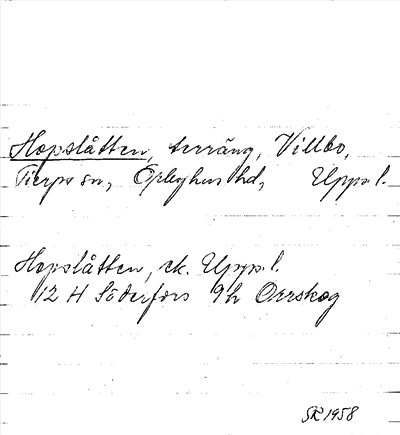 Hopslåtten, terräng, Villbo,
Tierps sn, Örbyhus hd, Upps. l.
Hopslåtten, ek. Upps. l.
12 H Söderfors 9h Orrskog
SR 1958